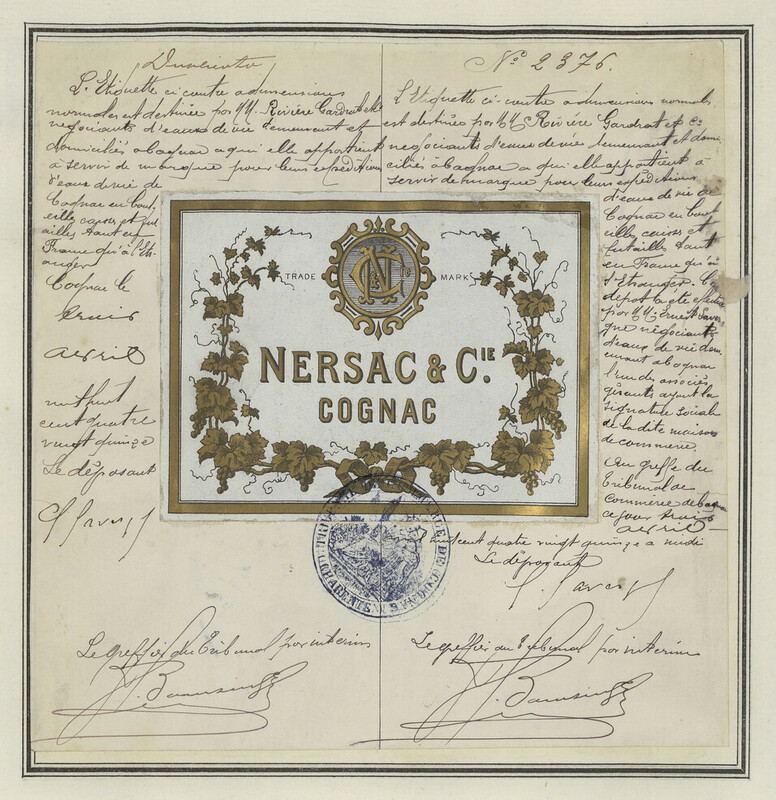 Duplicata
L'Etiquette ci contre a dimensions
normales est destinée par MM. Rivière Gardrat & Cie
négociants d'eaux de vie demeurant et
domiciliés à Cognac à qui elle appartient
à servir de marque pour leurs expéditions
d'eaux de vie de
Cognac en bout
eilles caisses et fut
ailles tant en
France qu'à l'Et
ranger
Cognac le
trois
avril
mil huit
cent quatre
vingt quinze
Le déposant
Le greffier du Tribunal par intérim
No 2376.
L'Etiquette ci-contre a dimensions normales
est destinée par MM. Rivière Gardrat et Cie
négociants d'eaux de vie demeurant et domi
ciliés à Cognac à qui elle appartient à
servir de marque pour leurs expéditions
d'eaux de vie de
Cognac en bout
eilles caisses et
futailles tant
en France qu'à
l'Etranger. Ce
dépôt a été effectué
par M. Ernest
négociant
d'eaux de vie dem
eurant à Cognac
l'un des associés
gérants ayant la
signature sociale
de la dite maison
de commerce.
Au greffe du
Tribunal de
Commerce de Cognac
ce jour trois
avril
mil huit cent quatre vingt quinze à midi
Le déposant
Le greffier du Tribunal par intérim
TRADE MARK
NC
NERSAC & CIE.
COGNAC